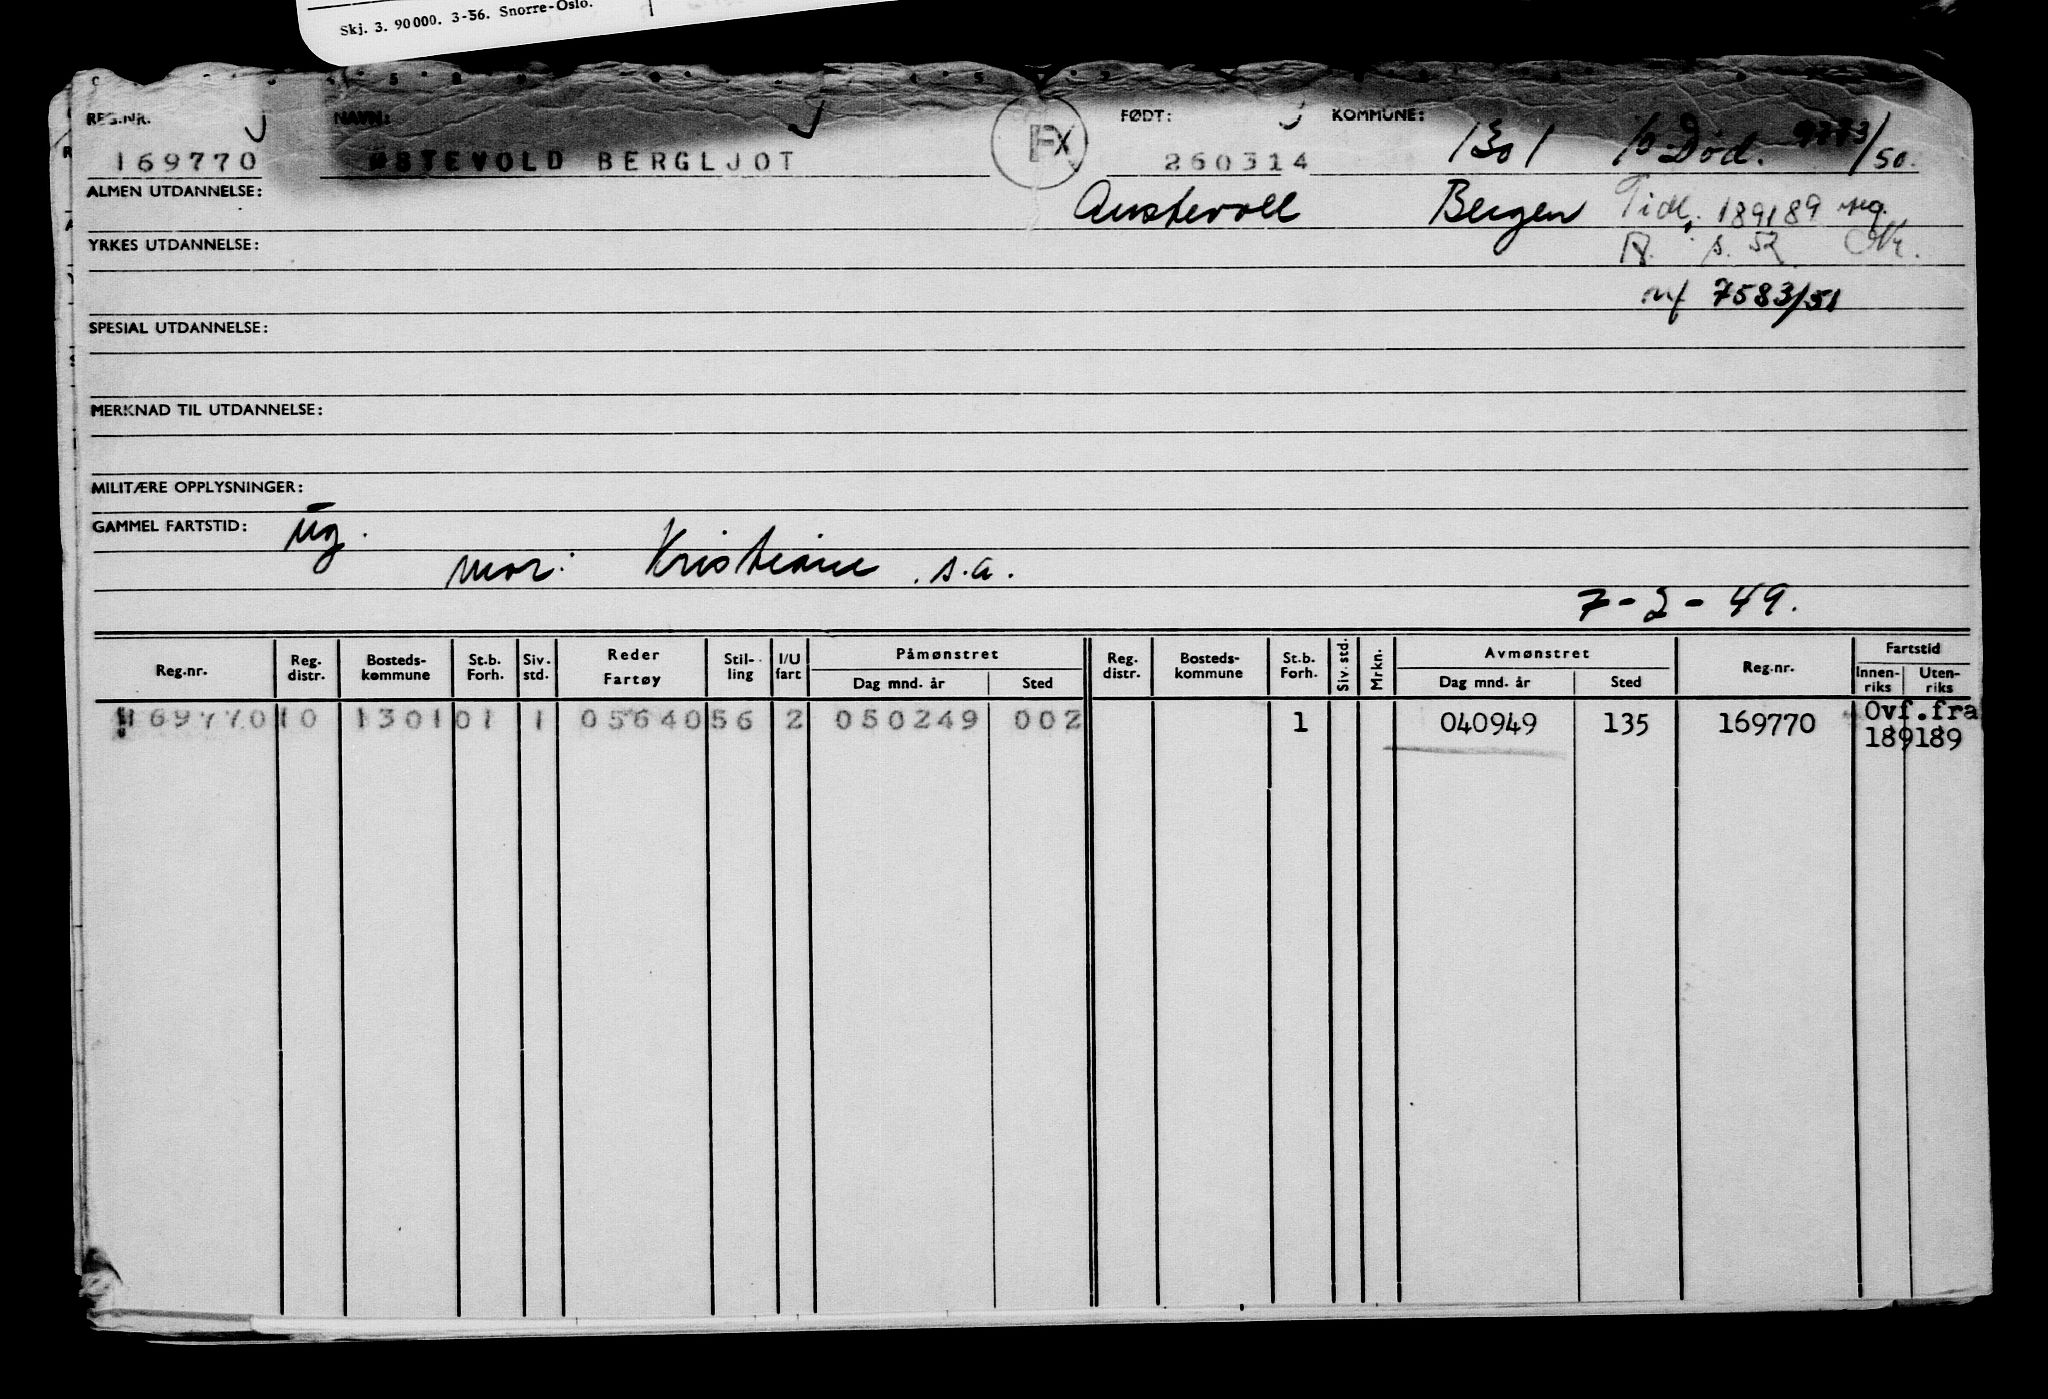 Skj. 3. 90000. 3-56. Snorre-Oslo.
REG.NR. NAVN: FX FØDT: KOMMUNE: 1301 Død. 9773/50.
169770 ØSTEVOLD BERGLJOT 260314
ALMEN UTDANNELSE: Austevoll Bergen Tidl. 189189 reg.
YRKES UTDANNELSE: s. 52
mf 7583/51
SPESIAL UTDANNELSE:
MERKNAD TIL UTDANNELSE:
MILITÆRE OPPLYSNINGER:
GAMMEL FARTSTID: Ug.
mor: Kristiane s.a.
7-2-49.
Reg.nr. Reg. distr. Bosteds-kommune St.b. Forh. Siv. std. Reder Fartøy Stil-ling I/U fart Påmønstret Dag mnd. år Sted Reg. distr. Bosteds-kommune St.b. Forh. Siv. std. Mrkn. Avmønstret Dag mnd. år Sted Reg.nr. Fartstid Innen-riks Uten-riks
169770 10 1301 01 1 05640 56 2 050249 002 1 040949 135 169770 Ovf.fra
189189